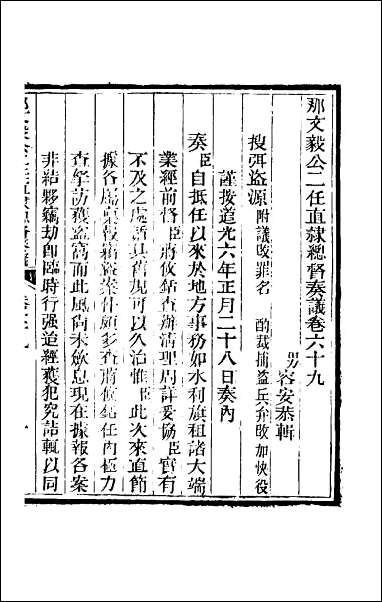 那文毅公二任直隸總督奏議卷六十九
男容安恭輯
搜弭盜源 附議改罪名 酌裁捕盜兵弁改加快役
謹按道光六年正月二十八日奏內
奏臣自抵任以來於地方事務如水利旗租諸大端
業經前督臣蔣攸銛查辦清理周詳妥協臣實有
不及之處請其舊規可以久治惟臣此次來直節
據各屬稟報竊盜案件頗多查蔣攸銛任內極力
查拏訪獲盜窩而此風尚未歛息現在據報各案
非結夥竊劫即臨時行强迨經獲犯究詰輒以同